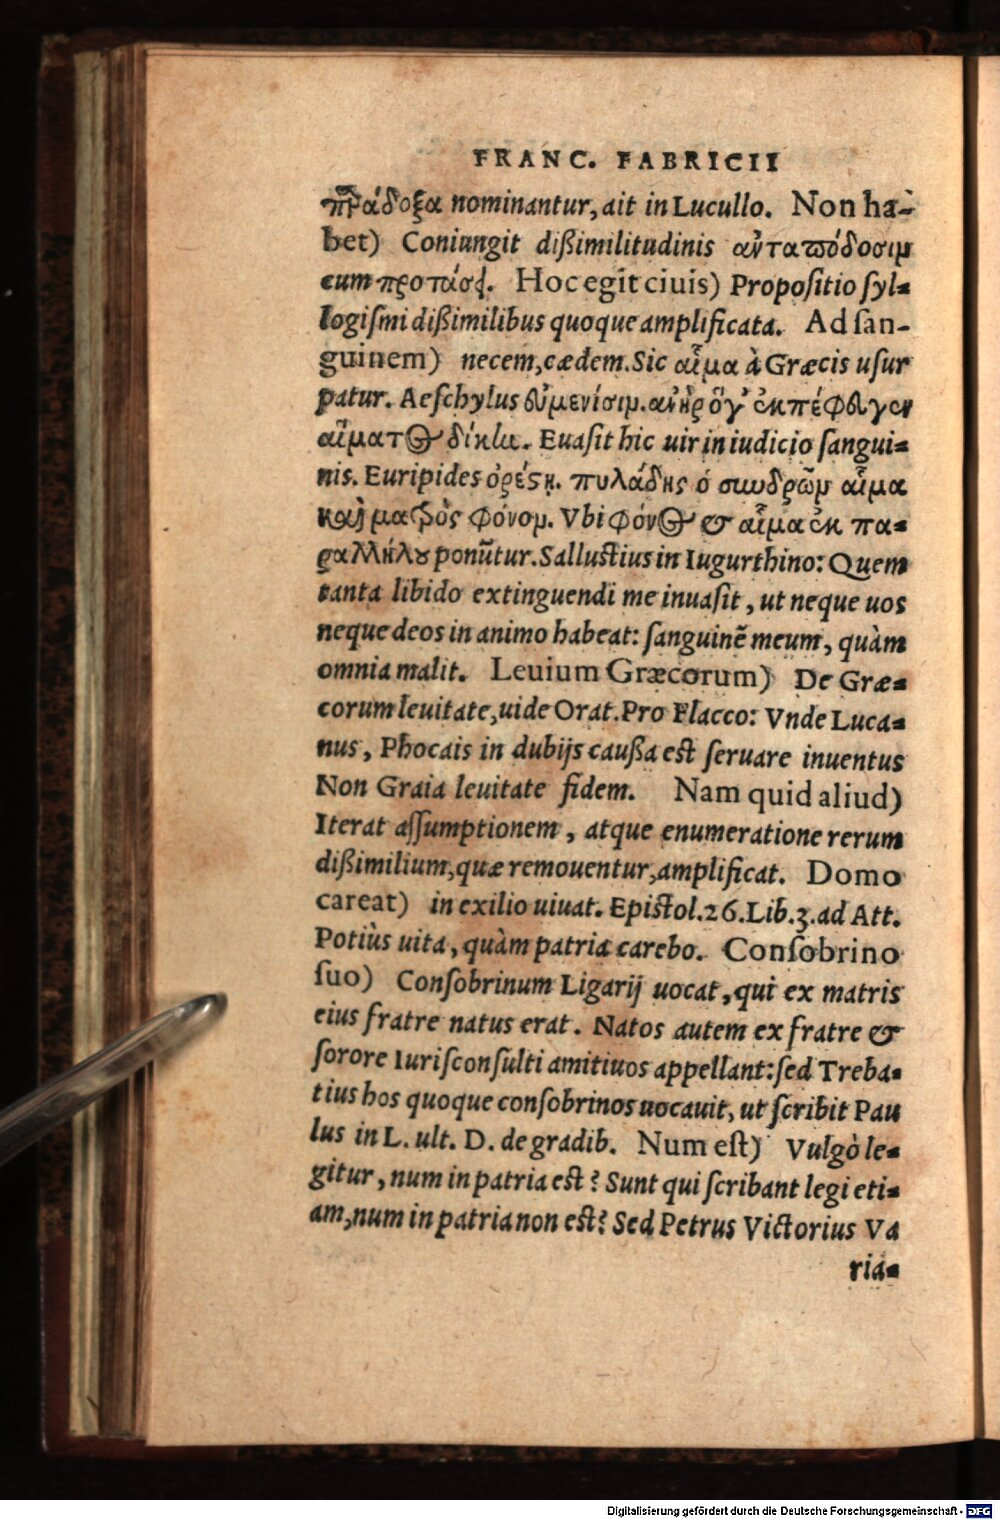 FRANC. FABRICII
παράδοξα nominantur, ait in Lucullo. Non ha-
bet) Coniungit dißimilitudinis ἀνταπόδοσιμ
cum προτάσει. Hoc egit ciuis) Propoſitio ſyl-
logiſmi dißimilibus quoque amplificata. Ad ſan-
guinem) necem, cædem. Sic αἷμα à Græcis uſur
patur. Aeſchylus εὐμενίσιμ. ἀνὴρ ὅγ' ἐκπέφευγεν
αἵματος δίκην. Euaſit hic uir in iudicio ſangui-
nis. Euripides ὀρέστη. πυλάδης ὁ συνδρῶμ αἷμα
καὶ μητρὸς φόνομ. Vbi φόνος & αἷμα ἐκ πα-
ραλλήλου ponūtur. Salluſtius in Iugurthino: Quem
tanta libido extinguendi me inuaſit, ut neque uos
neque deos in animo habeat: ſanguinē meum, quàm
omnia malit. Leuium Græcorum) De Græ-
corum leuitate, uide Orat. Pro Flacco: Vnde Luca-
nus, Phocais in dubijs caußa eſt ſeruare inuentus
Non Graia leuitate fidem. Nam quid aliud)
Iterat aſſumptionem, atque enumeratione rerum
dißimilium, quæ remouentur, amplificat. Domo
careat) in exilio uiuat. Epiſtol. 26. Lib. 3. ad Att.
Potiùs uita, quàm patria carebo. Conſobrino
ſuo) Conſobrinum Ligarij uocat, qui ex matris
eius fratre natus erat. Natos autem ex fratre &
ſorore Iuriſconſulti amitiuos appellant: ſed Treba-
tius hos quoque conſobrinos uocauit, ut ſcribit Pau
lus in L. ult. D. de gradib. Num eſt) Vulgò le-
gitur, num in patria eſt? Sunt qui ſcribant legi eti-
am, num in patria non eſt? Sed Petrus Victorius Va
ria-
Digitalisierung gefördert durch die Deutsche Forschungsgemeinschaft - DFG